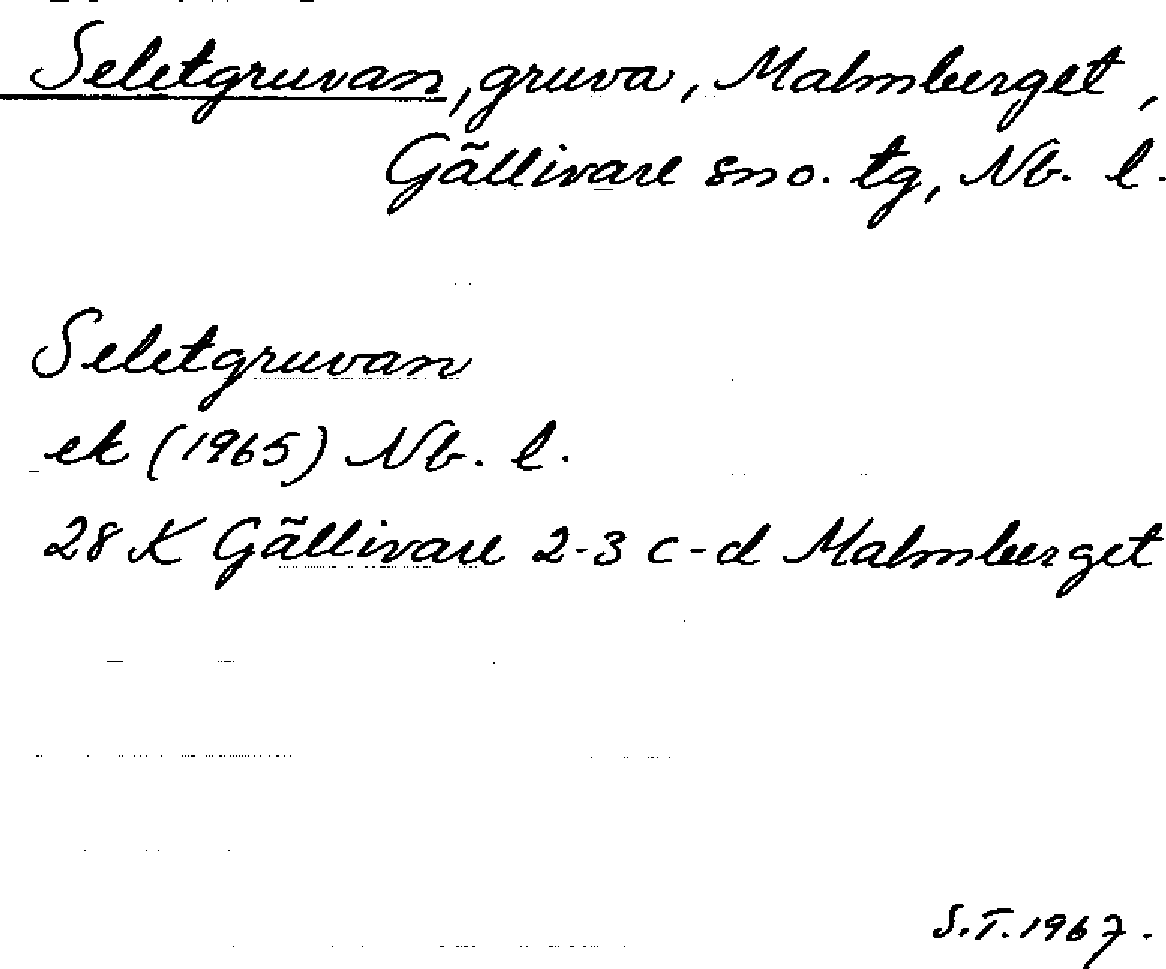 Seletgruvan, gruva, Malmberget,
Gällivare sno. tg, Nb. l.
Seletgruvan
ek (1965) Nb. l.
28 K Gällivare 2-3 c-d Malmberget
S.T. 1967.